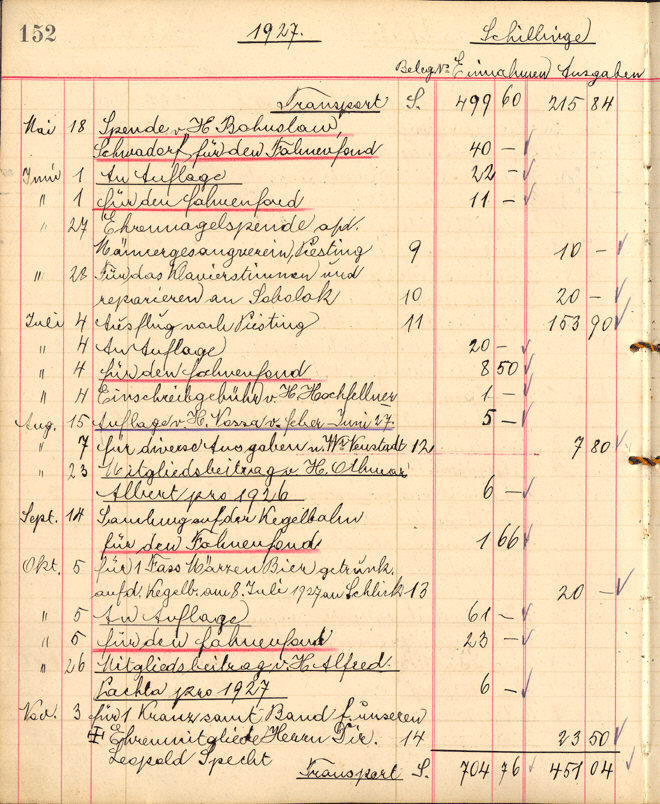 152 1927. Schillinge
Beleg No Einnahmen Ausgaben
Transport S. 499 60 215 84
Mai 18 Spende v. H. Bohuslaw,
Schwadorf, für den Fahnenfond 40 –
Juni 1 An Auflage 22 –
" 1 für den Fahnenfond 11 –
" 27 Ehrennagelspende a/d.
Männergesangverein, Piesting 9 10 –
" 28 Für das Klavierstimmen und
reparieren an Sobolok 10 20 –
Juli 4 Ausflug nach Piesting 11 153 90
" 4 An Auflage 20 –
" 4 für den Fahnenfond 8 50
" 4 Einschreibgebühr v. H. Hochfellner 1 –
Aug. 15 Auflage v. H. Vossa v. Juni 27. 5 –
" 7 für diverse Ausgaben n. Wr Neustadt 12 7 80
" 23 Mitgliedsbeitrag v. H. Othmar
Albert pro 1926 6 –
Sept. 14 Samlung auf der Kegelbahn
für den Fahnenfond 1 66
Okt. 5 für 1 Fass Märzen Bier getrunk.
auf d. Kegelb. am 8. Juli 1927 an Schlick 13 20 –
" 5 An Auflage 61 –
" 5 für den Fahnenfond 23 –
" 26 Mitgliedsbeitrag v. H. Alfred.
Lachta pro 1927 6 –
Nov. 3 für 1 Kranz samt Band f. unseren
Ehrenmitgliede Herrn Dir. 14 23 50
Leopold Specht
Transport S. 704 76 451 04